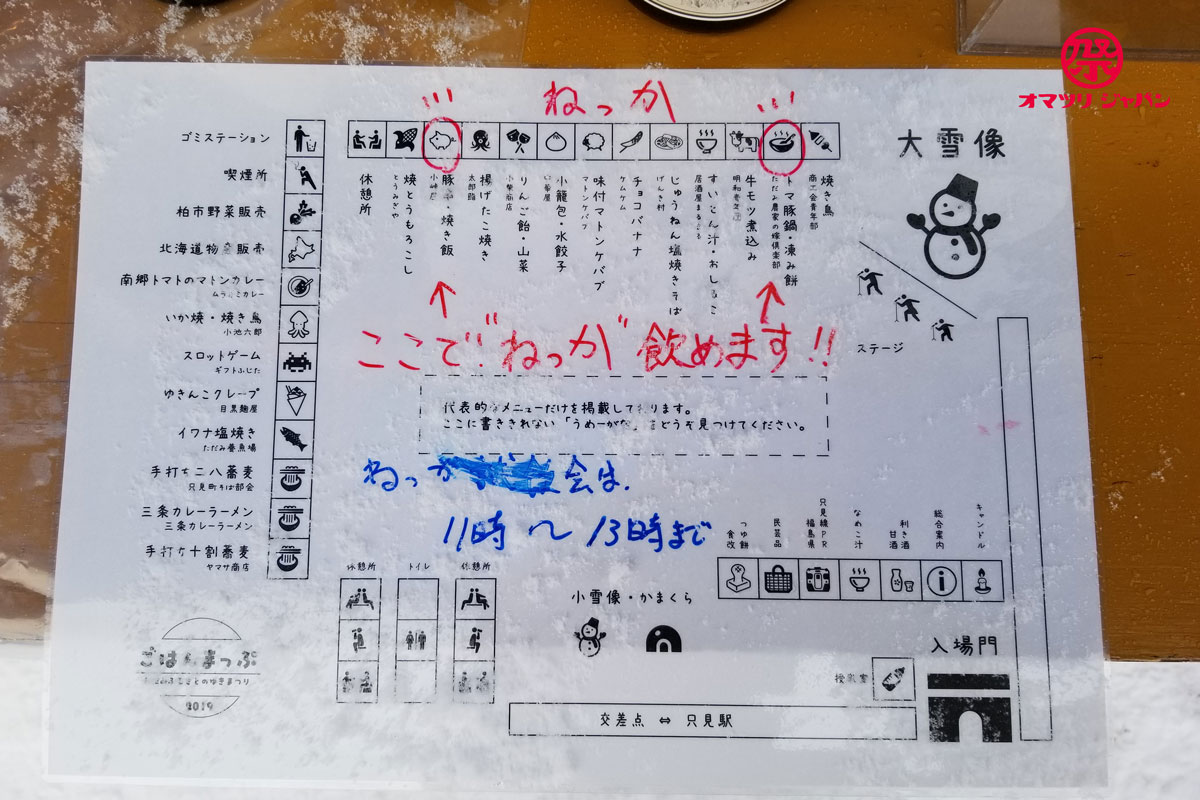 祭
オマツリ ジャパン
ねっか
大雪像
ゴミステーション
喫煙所
柏市野菜販売
北海道物産販売
南郷トマトのマトンカレー
カレー
いか焼・焼き鳥
小池六郎
スロットゲーム
ギフトふじた
ゆきんこクレープ
目黒麺屋
イワナ塩焼き
ただみ養魚場
手打ち二八蕎麦
只見町そば部会
三条カレーラーメン
三条カレーラーメン
手打ち十割蕎麦
ヤマサ商店
焼き鳥
商工会青年部
トマ豚鍋・凍み餅
ただみ農家の嫁倶楽部
牛モツ煮込み
明和青年団
すいとん汁・おしるこ
居酒屋まるまる
じゅうねん塩焼きそば
げんき村
チョコバナナ
ケムケム
味付マトンケバブ
マトンケバブ
小籠包・水餃子
りんご飴・山菜
小柴商店
揚げたこ焼き
太郎鮨
豚串・焼き飯
焼とうもろこし
とうみぎや
休憩所
ステージ
ここで"ねっか"飲めます!!
代表的なメニューだけを掲載しております。
ここに書ききれない「うめーがな」をどうぞ見つけてください。
ねっか 会は、
11時〜13時まで
つゆ餅
食改
民芸品
只見線PR
福島県
なめこ汁
利き酒
甘酒
総合案内
キャンドル
休憩所
トイレ
休憩所
小雪像・かまくら
入場門
授乳室
交差点 ⇔ 只見駅
ごはんまっぷ
ふるさとのゆきまつり
2019